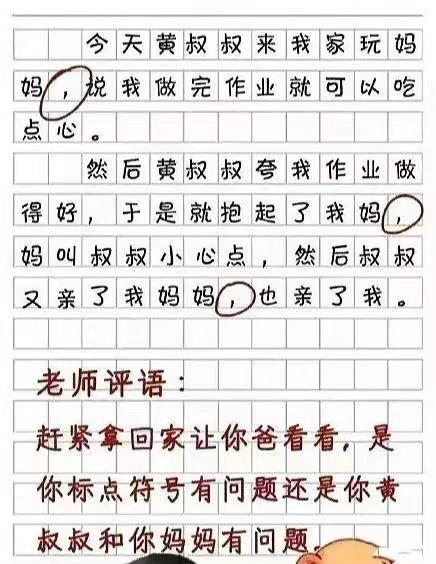 今天黄叔叔来我家玩妈
妈，说我做完作业就可以吃
点心。
然后黄叔叔夸我作业做
得好，于是就抱起了我妈，
妈叫叔叔小心点，然后叔叔
又亲了我妈妈，也亲了我。
老师评语：
赶紧拿回家让你爸看看，是
你标点符号有问题还是你黄
叔叔和你妈妈有问题。